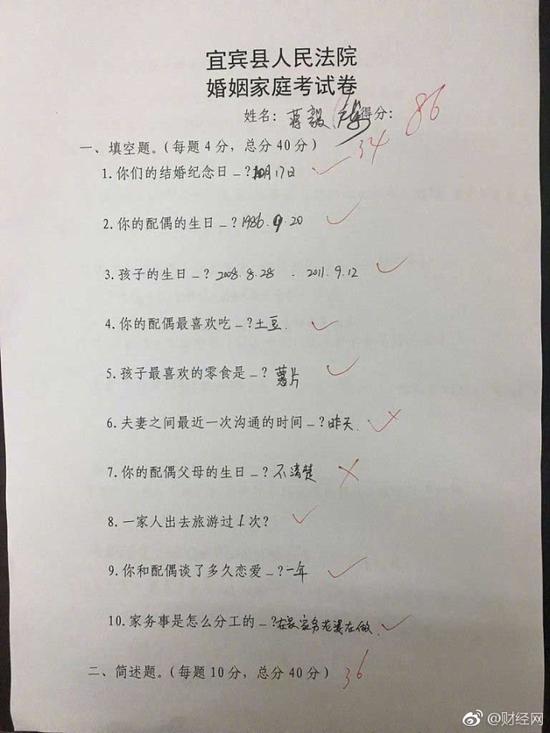 宜宾县人民法院
婚姻家庭考试卷
姓名: 蒋毅 得分: 86
一、填空题。(每题4分, 总分40分) 34
1.你们的结婚纪念日_?10月17日
2.你的配偶的生日_?1986.9.20
3.孩子的生日_?2008.8.28 . 2011.9.12
4.你的配偶最喜欢吃_?土豆.
5.孩子最喜欢的零食是_?薯片
6.夫妻之间最近一次沟通的时间_?昨天.
7.你的配偶父母的生日_?不清楚
8.一家人出去旅游过1次?
9.你和配偶谈了多久恋爱_?一年
10.家务事是怎么分工的_?家务老婆在做.
二、简述题。(每题10分, 总分40分) 36
@财经网